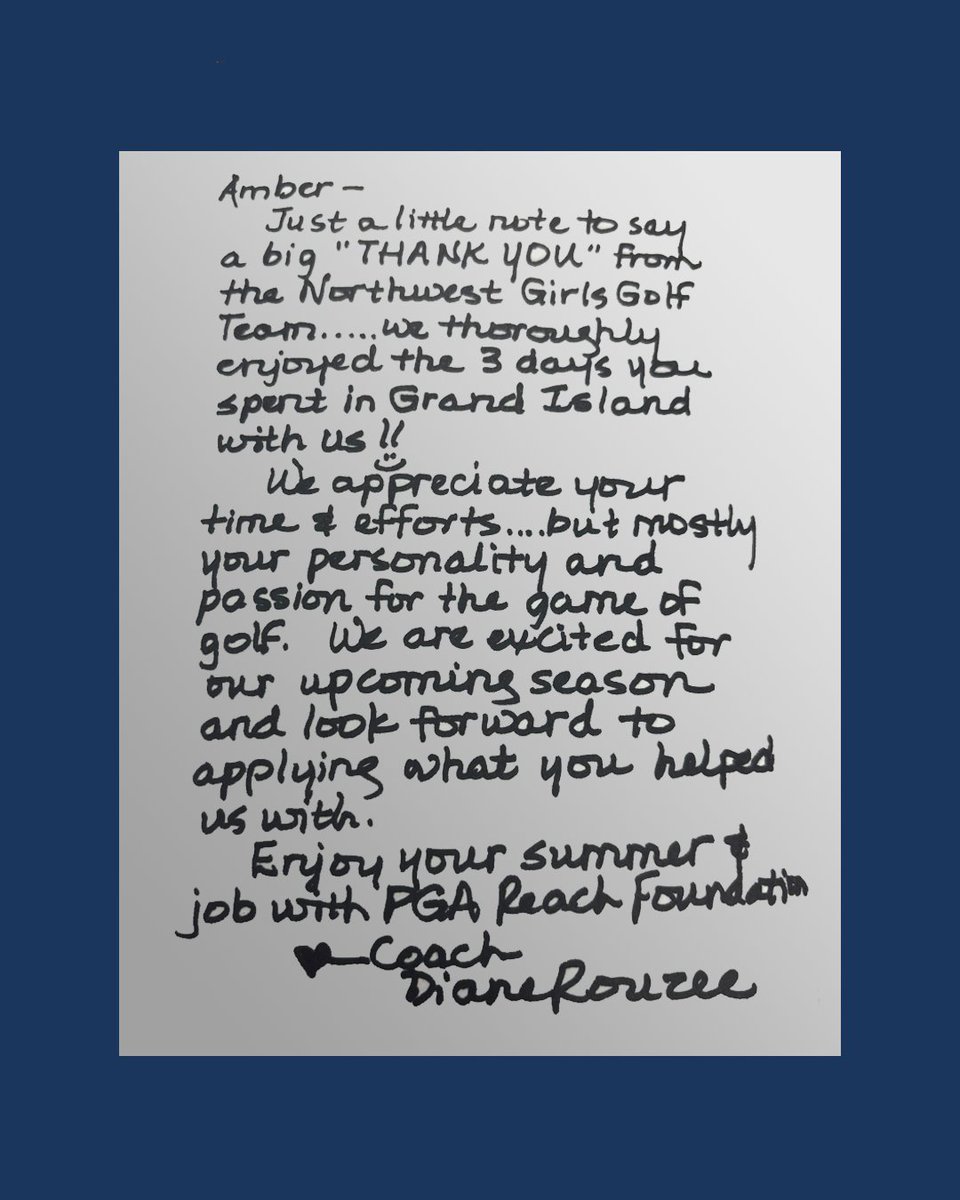 Amber —
Just a little note to say
a big "THANK YOU" from
the Northwest Girls Golf
Team.....we thoroughly
enjoyed the 3 days you
spent in Grand Island
with us !!
We appreciate your
time & efforts....but mostly
your personality and
passion for the game of
golf. We are excited for
our upcoming season
and look forward to
applying what you helped
us with.
Enjoy your summer &
job with PGA Reach Foundation
♥—Coach
Diane Rouzee